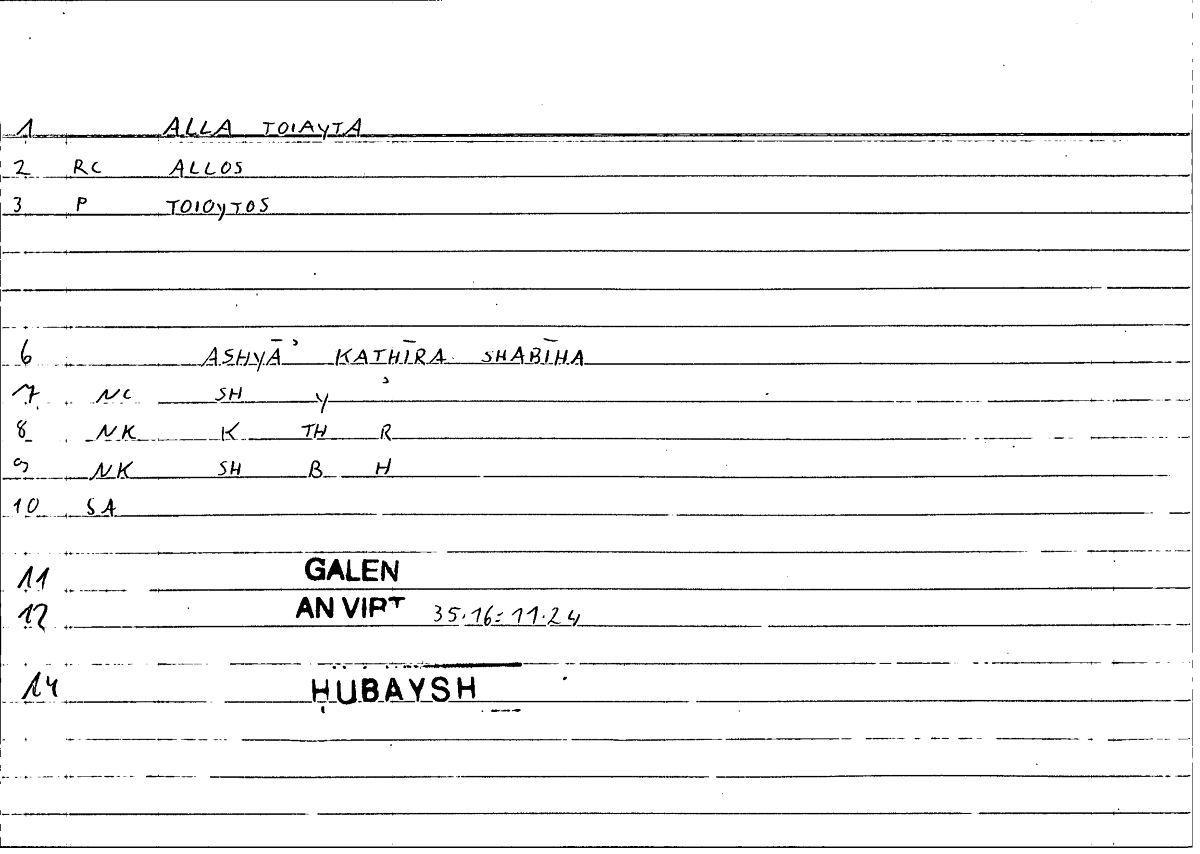 1 ALLA TOIAYTA
2 RC ALLOS
3 P TOIOYTOS
6 ASHYĀʾ KATHĪRA SHABĪHA
7 NC SH Y ʾ
8 NK K TH R
9 NK SH B H
10 SA
11 GALEN
12 AN VIRT 35.16=11.24
14 ḤUBAYSH